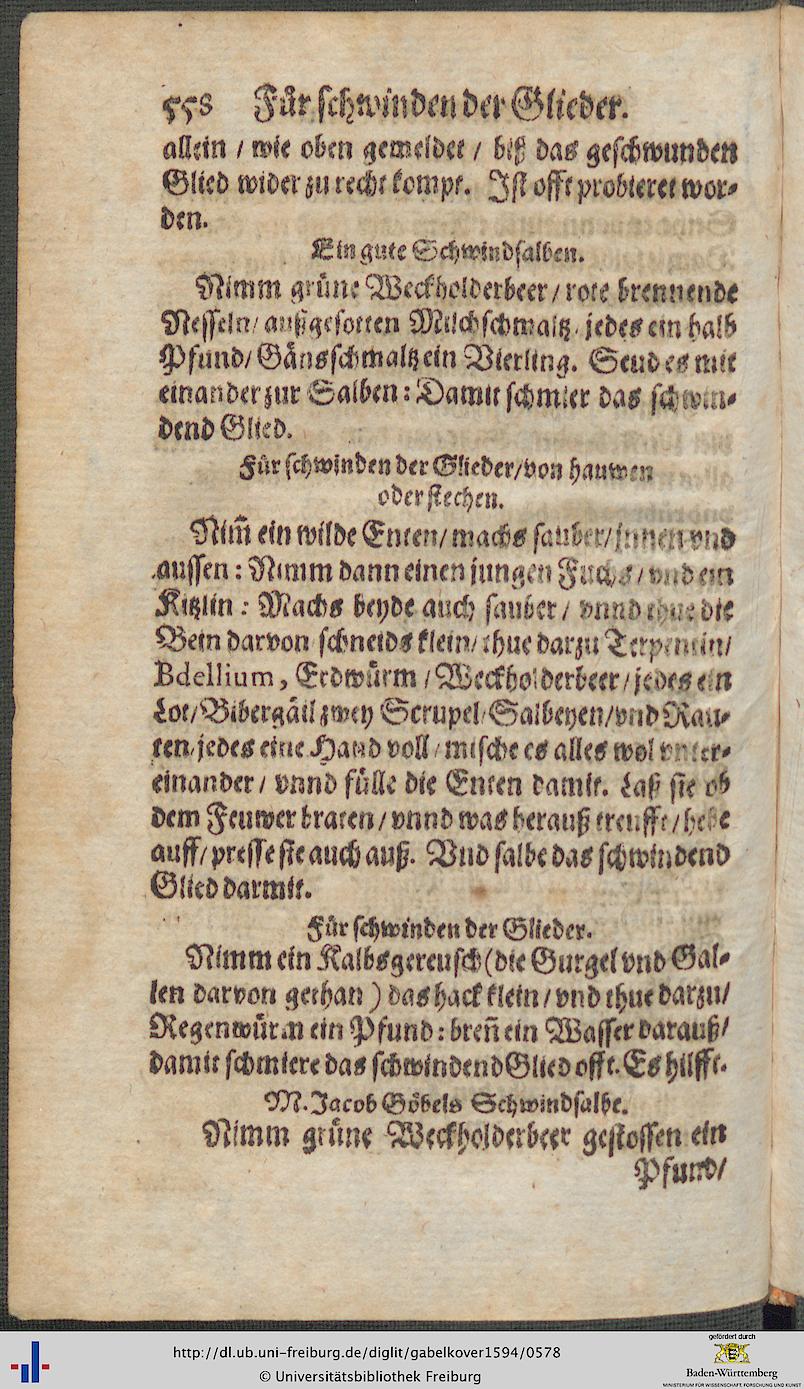 558 Für schwinden der Glieder.
allein / wie oben gemeldet / biß das geschwunden
Glied wider zu recht kompt. Ist offt probieret wor-
den.
Ein gute Schwindsalben.
Nimm grüne Weckholderbeer / rote brennende
Nesseln / außgesotten Milchschmaltz / jedes ein halb
Pfund / Gänsschmaltz ein Vierling. Seud es mit
einander zur Salben : Damit schmier das schwin-
dend Glied.
Für schwinden der Glieder / von hauwen
oder stechen.
Nim̃ ein wilde Enten / machs sauber / innen vnd
aussen : Nimm dann einen jungen Fuchs / vnd ein
Kitzlin : Machs beyde auch sauber / vnnd thue die
Bein darvon / schneids klein / thue darzu Terpentin /
Bdellium, Erdwürm / Weckholderbeer / jedes ein
Lot / Bibergäil zwey Scrupel / Salbeyen / vnd Rau-
ten / jedes eine Hand voll / mische es alles wol vnter-
einander / vnnd fülle die Enten damit. Laß sie ob
dem Feuwer braten / vnnd was herauß treufft / hebe
auff / presse sie auch auß. Vnd salbe das schwindend
Glied darmit.
Für schwinden der Glieder.
Nimm ein Kalbsgereusch (die Gurgel vnd Gal-
len darvon gethan) das hack klein / vnd thue darzu /
Regenwürm ein Pfund : breñ ein Wasser darauß /
damit schmiere das schwindend Glied offt. Es hilfft.
M. Jacob Göbels Schwindsalbe.
Nimm grüne Weckholderbeer gestossen ein
Pfund /
http://dl.ub.uni-freiburg.de/diglit/gabelkover1594/0578
© Universitätsbibliothek Freiburg
gefördert durch
Baden-Württemberg
MINISTERIUM FÜR WISSENSCHAFT, FORSCHUNG UND KUNST